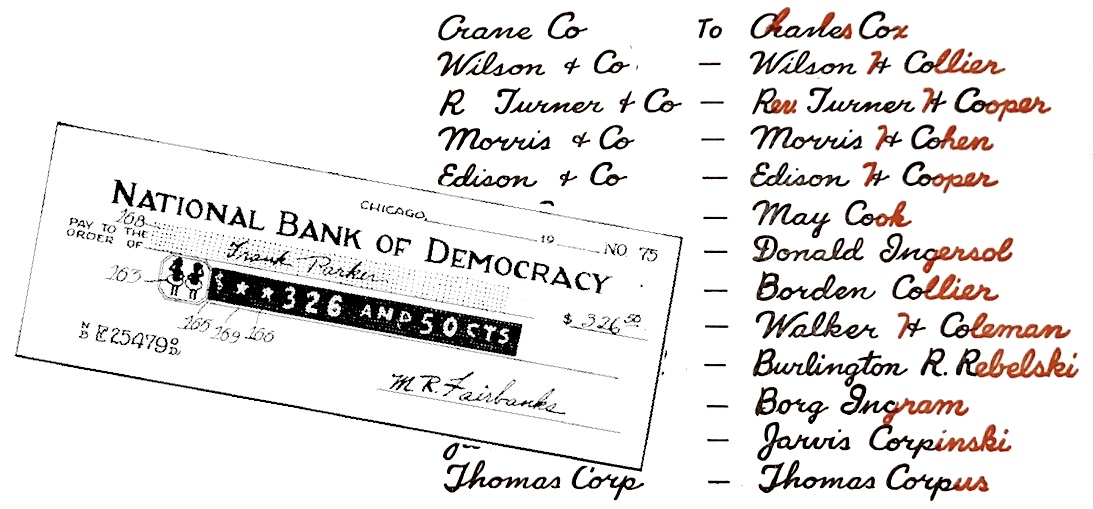 Crane Co To Charles Cox
Wilson & Co. — Wilson H Collier
R Turner & Co — Rev. Turner H Cooper
Morris & Co — Morris H Cohen
Edison & Co — Edison H Cooper
— May Cook
— Donald Ingersol
— Borden Collier
— Walker H Coleman
— Burlington R. Rebelski
— Borg Ingram
— Jarvis Corpinski
Thomas Corp — Thomas Corpus
CHICAGO, 19 NO 75
NATIONAL BANK OF DEMOCRACY
168
PAY TO THE
ORDER OF Frank Parker $ 326 50
163 $ ** 326 AND 50 CTS
165 169 166
N B E25479 B D
M.R. Fairbanks